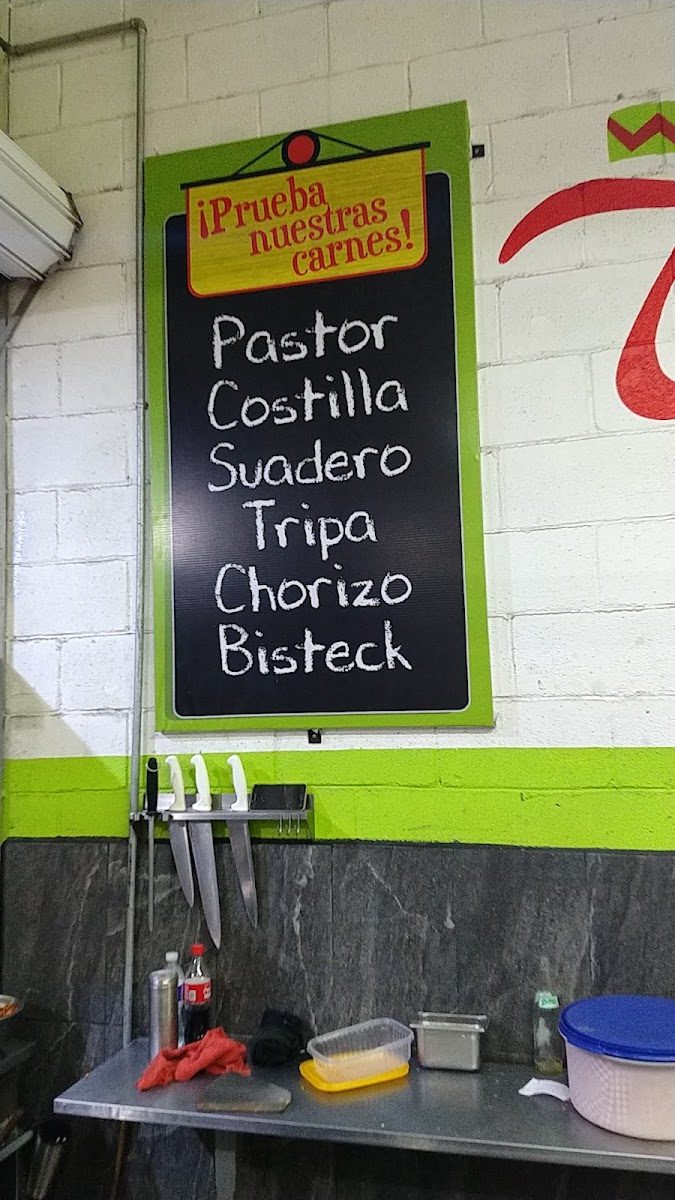 ¡Prueba
nuestras
carnes!
Pastor
Costilla
Suadero
Tripa
Chorizo
Bisteck